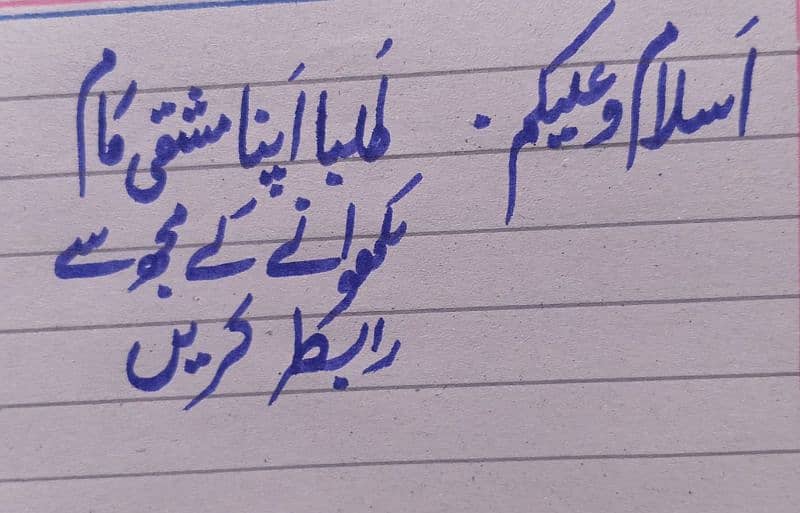 اَسلام وعلیکم. طلبا اَپنا مشقی کام
لکھوانے کے مجھ سے
رابطہ کریں